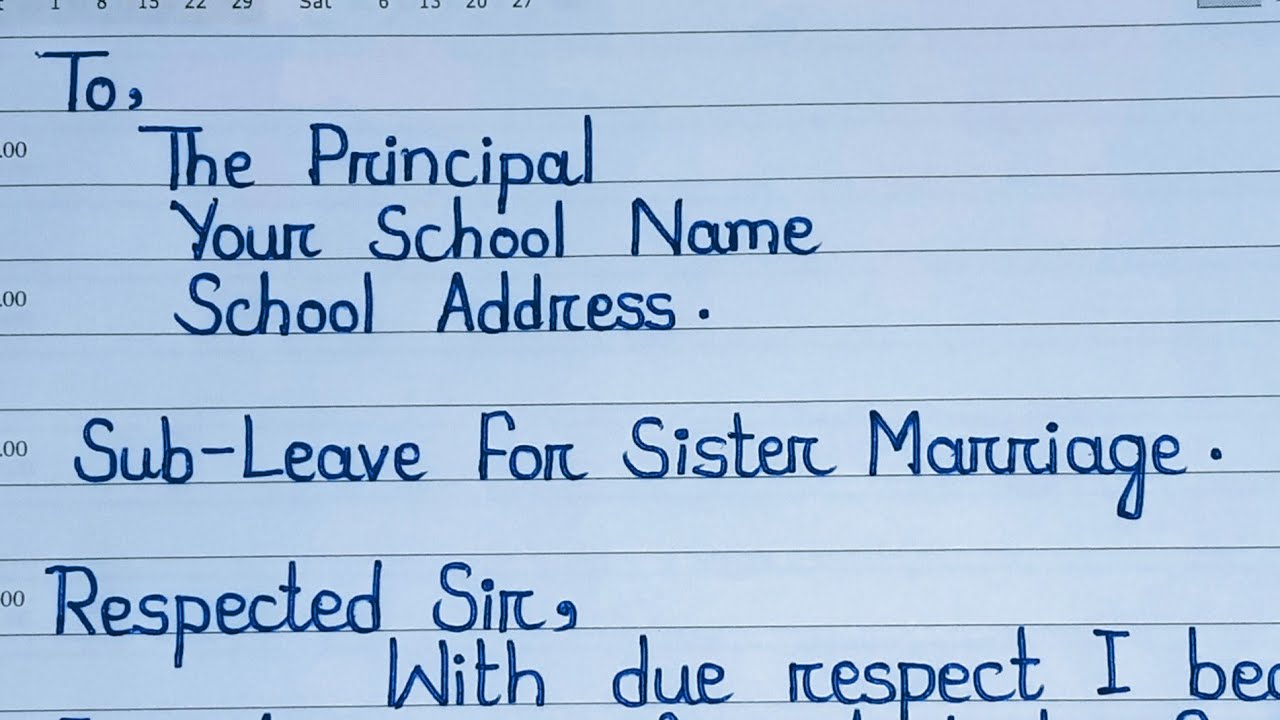 1 8 15 22 29 Sat 6 13 20 27
To,
.00
The Principal
Your School Name
.00
School Address.
.00
Sub-Leave For Sister Marriage.
00
Respected Sir,
With due respect I